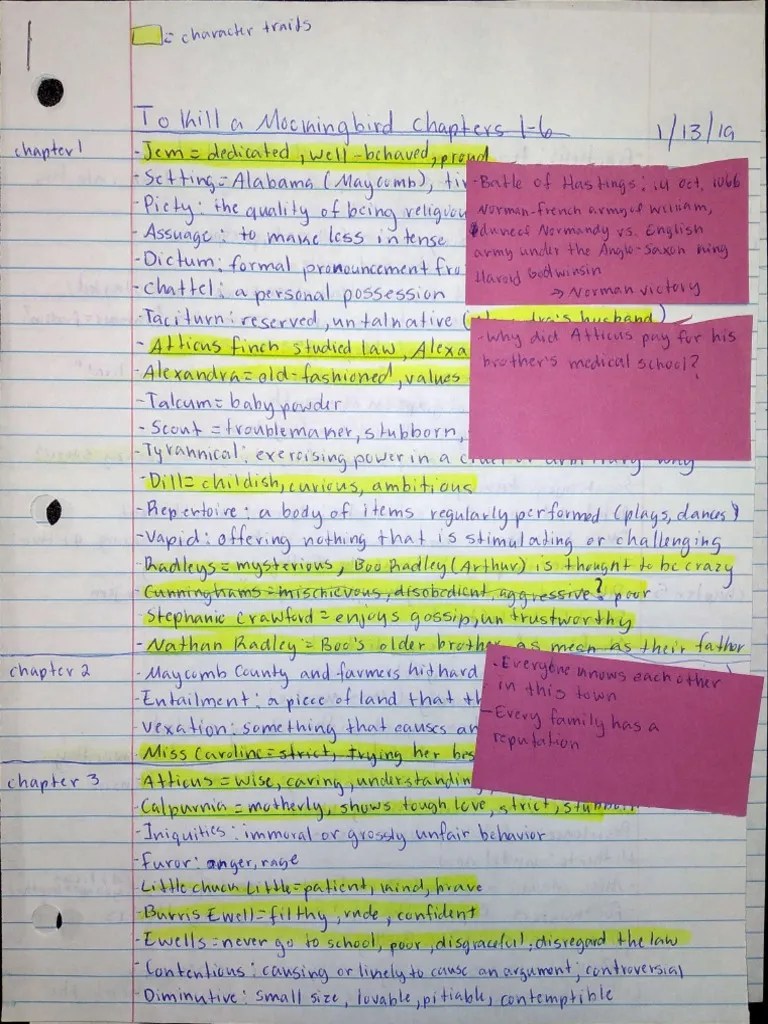 = character traits
To Kill a Mockingbird Chapters 1-6
1/13/19
chapter 1
- Jem = dedicated, well-behaved, proud
- Setting = Alabama (Maycomb),
- Piety: the quality of being religious
- Assuage: to make less intense
- Dictum: formal pronouncement
- Chattel: a personal possession
- Taciturn: reserved, untalkative ( husband)
- Atticus finch studied law,
- Alexandra = old-fashioned, values
- Talcum = baby powder
- Scout = troublemaker, stubborn,
- Tyrannical: exercising power in a
- Dill = childish, curious, ambitious
- Repertoire: a body of items regularly performed (plays, dances)
- Vapid: offering nothing that is stimulating or challenging
- Radleys = mysterious, Boo Radley (Arthur) is thought to be crazy
- Cunninghams = mischievous, disobedient, aggressive? poor
- Stephanie Crawford = enjoys gossip, untrustworthy
- Nathan Radley = Boo's older brother, as mean as their father
chapter 2
- Maycomb County and farmers hit hard
- Entailment: a piece of land that
- Vexation: something that causes
- Miss Caroline = strict, trying her
chapter 3
- Atticus = wise, caring, understanding
- Calpurnia = motherly, shows tough love, strict, stubborn
- Iniquities: immoral or grossly unfair behavior
- Furor: anger, rage
- Little Chuck Little = patient, kind, brave
- Burris Ewell = filthy, rude, confident
- Ewells = never go to school, poor, disgraceful, disregard the law
- Contentious: causing or likely to cause an argument; controversial
- Diminutive: small size, lovable, pitiable, contemptible
- Battle of Hastings: 14 Oct, 1066
Norman-french army of William,
dune of Normandy vs. English
army under the Anglo-Saxon king
Harold Godwinsin
→ Norman victory
- Why did Atticus pay for his
brother's medical school?
- Everyone knows each other
in this town
- Every family has a
reputation